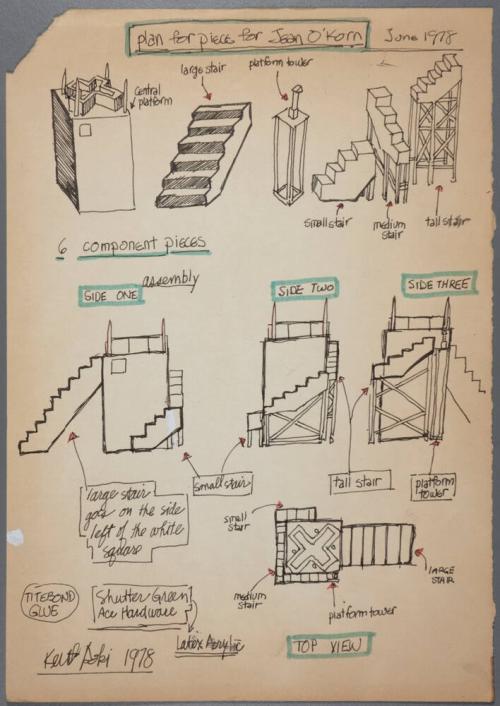 plan for piece for Jean O'Korn June 1978
large stair
platform tower
Central
platform
small stair
medium
stair
tall stair
6 component pieces
assembly
SIDE ONE
SIDE TWO
SIDE THREE
large stair
goes on the side
left of the white
square
small stair
tall stair
platform
tower
small
stair
LARGE
STAIR
medium
stair
platform tower
TITEBOND
GLUE
Shutter Green
Ace Hardware
Latex Acrylic
1978
TOP VIEW